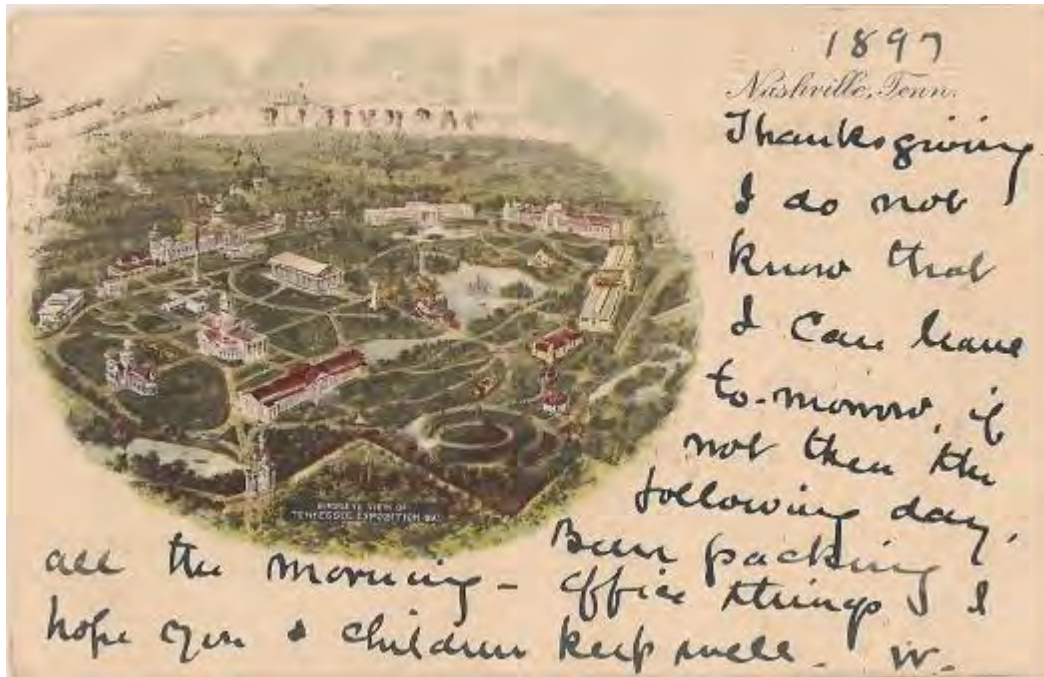 1897
Nashville, Tenn.
Thanksgiving
I do not
know that
I can leave
to-morrow, if
not then the
following day,
Been packing
all the morning - office things I
hope you & children keep well. W.
BIRDSEYE VIEW OF
TENNESSEE EXPOSITION 1897